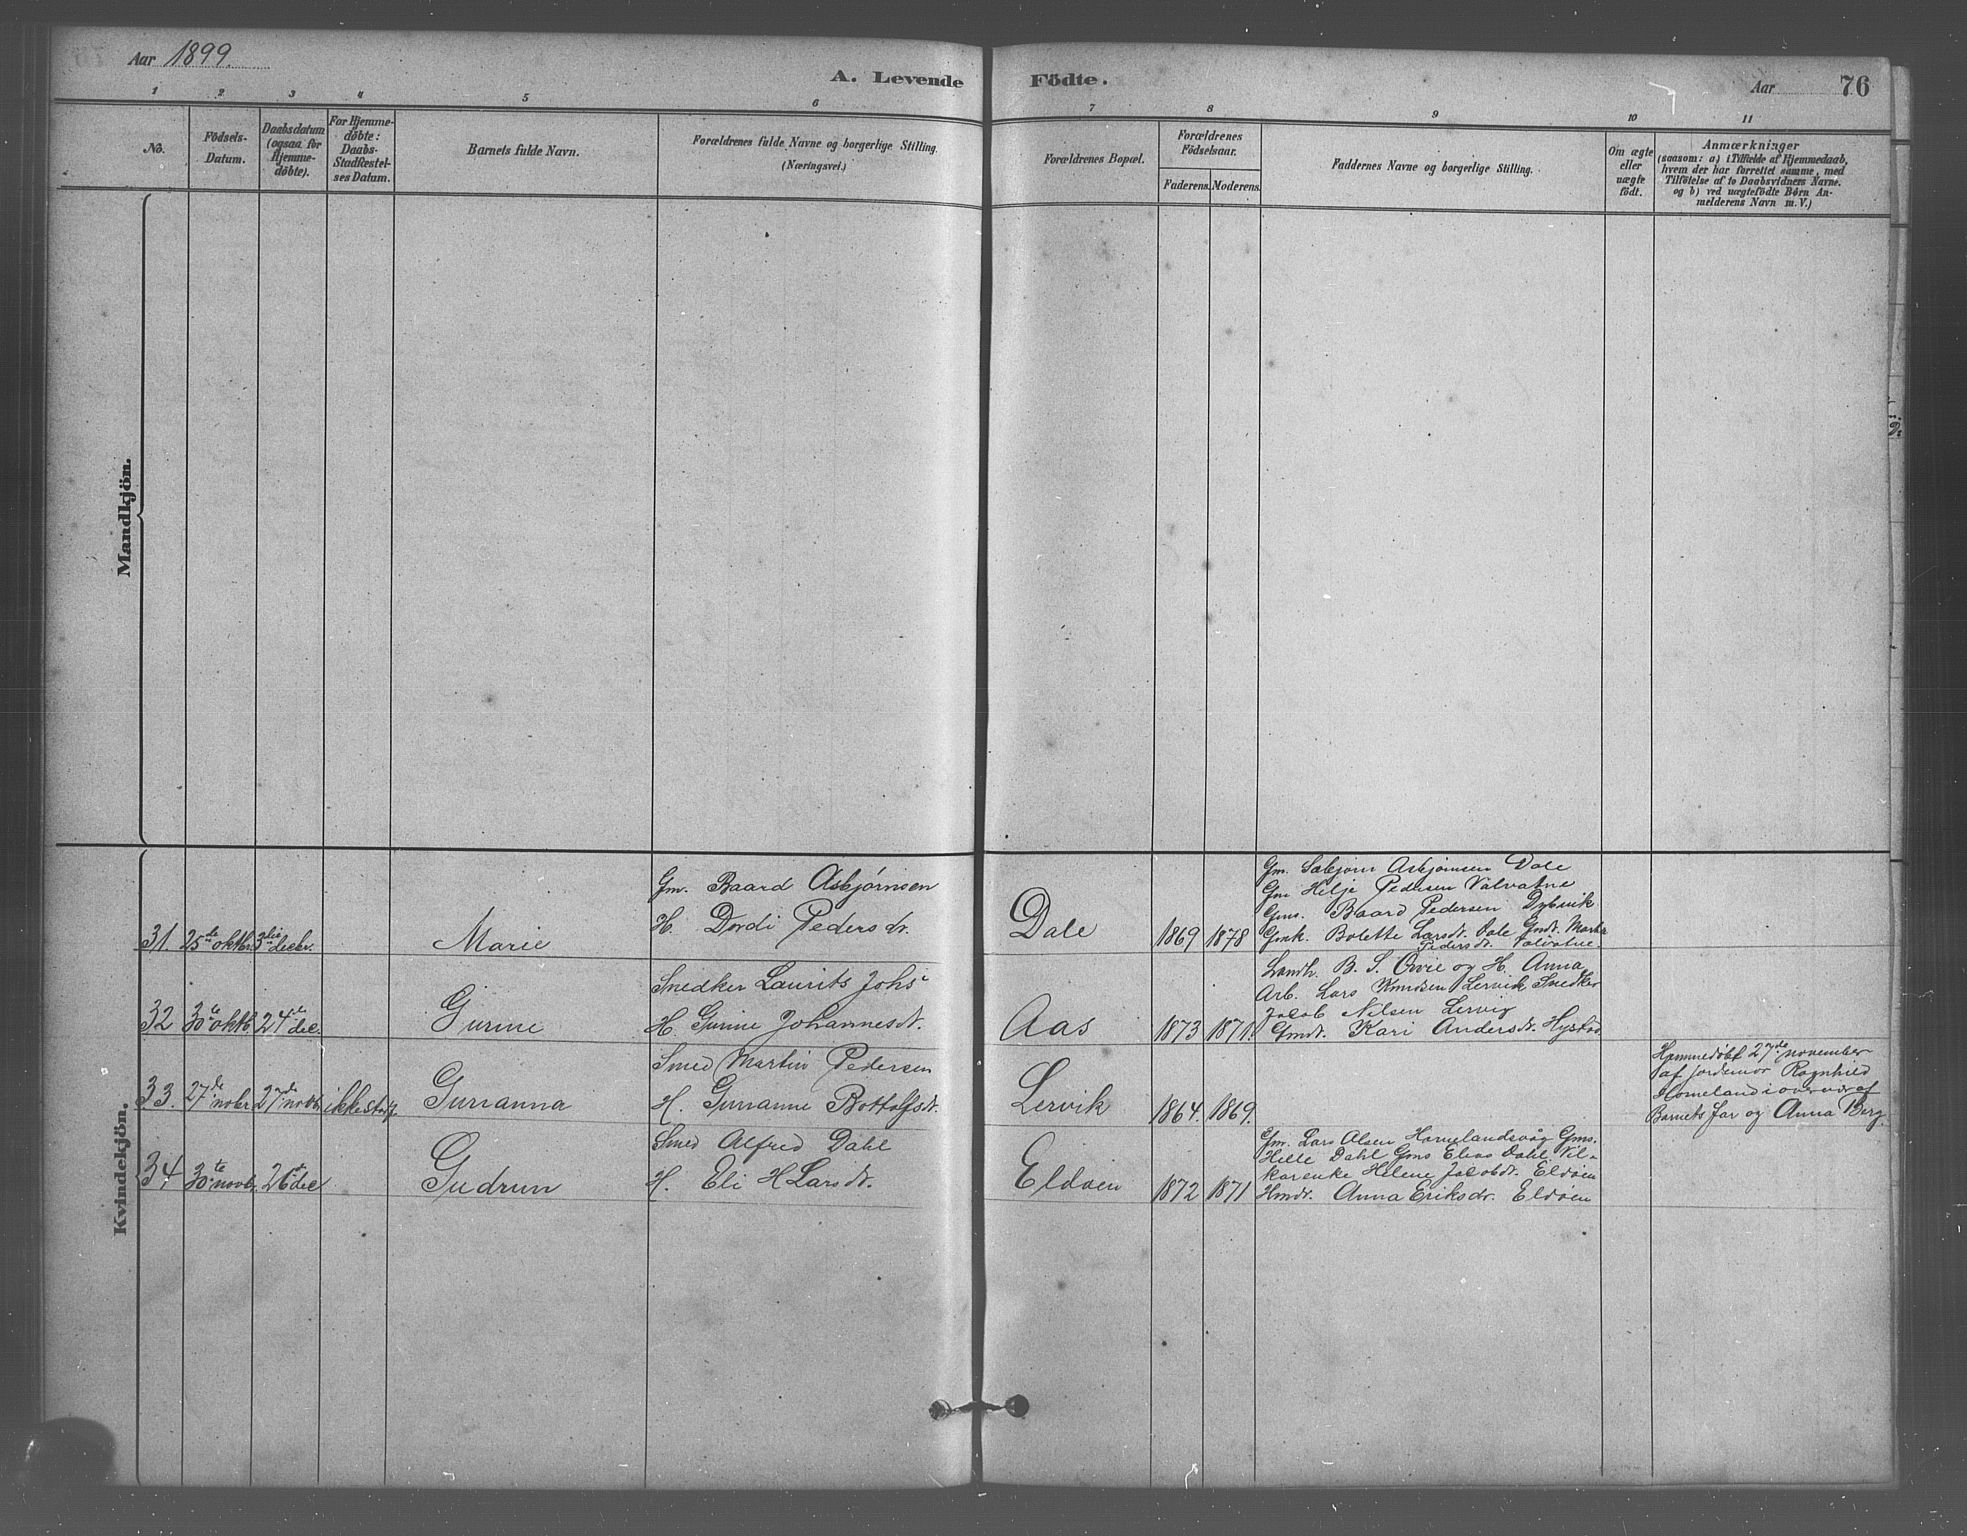 Aar 1899.
A. Levende Födte.
Aar 76
1 2 3 4 5 6 7 8 9 10 11
No.
Födsels-
Datum.
Daabsdatum
(ogsaa for
Hjemme-
döbte).
For Hjemme-
döbte:
Daabs-
Stadfæstel-
ses Datum.
Barnets fulde Navn.
Forældrenes fulde Navne og borgerlige Stilling.
(Næringsvei.)
Forældrenes Bopæl.
Forældrenes
Födselsaar.
Faderens. Moderens.
Faddernes Navne og borgerlige Stilling.
Om ægte
eller
uægte
födt.
Anmærkninger
(saasom: a) i Tilfælde af Hjemmedaab,
hvem der har forrettet samme, med
Tilföielse af to Daabsvidners Navne.
og b) ved uægtefödte Börn An-
melderens Navn m. V.)
Mandkjön.
Kvindekjön.
31 25de oktbr. 3die decbr. Marie
Gm. Baard Asbjørnsen
H. Dordi Pedersdr.
Dale 1869 1878
Gm. Sæbjørn Asbjørnsen Dale
Gm Helje Pedersen Valvatne
Gms. Baard Pedersen Dybvik
Gmk. Bolette Larsdt. Dale Gmdt. Marta
Pedersdt. Valvatne.
32 30te oktb. 24de dec. Gurine
Snedker Laurits Johs
H. Gurine Johannesdt.
Aas 1873 1871.
Landh. B. S. Orvie og H. Anna
Arb. Lars Knudsen Lervik Snedker
Jacob Nilsen Lervig
Gmdt. Kari Andersdt. Hystad
33. 27de nobr. 27de nobr. ikke stadf. Gurianna
Smed Martin Pedersen
H. Gurianne Bottolfsdt.
Lervik 1864. 1869.
Hjemmedøbt 27de november
af Jordemor Ragnhild
Homeland i overvær af
Barnets far og Anna Berg.
34 30te novb. 26de dec Gudrun
Smed Alfred Dahl
H. Eli H Larsdt.
Eldøen 1872 1871
Gm. Lars Olsen Hornelandsvåg Gms.
Helle Dahl Gms Elias Dahl. Vil-
kårenke Helene Jacobdt. Eldøen
Hmdt. Anna Eriksdr. Eldøen